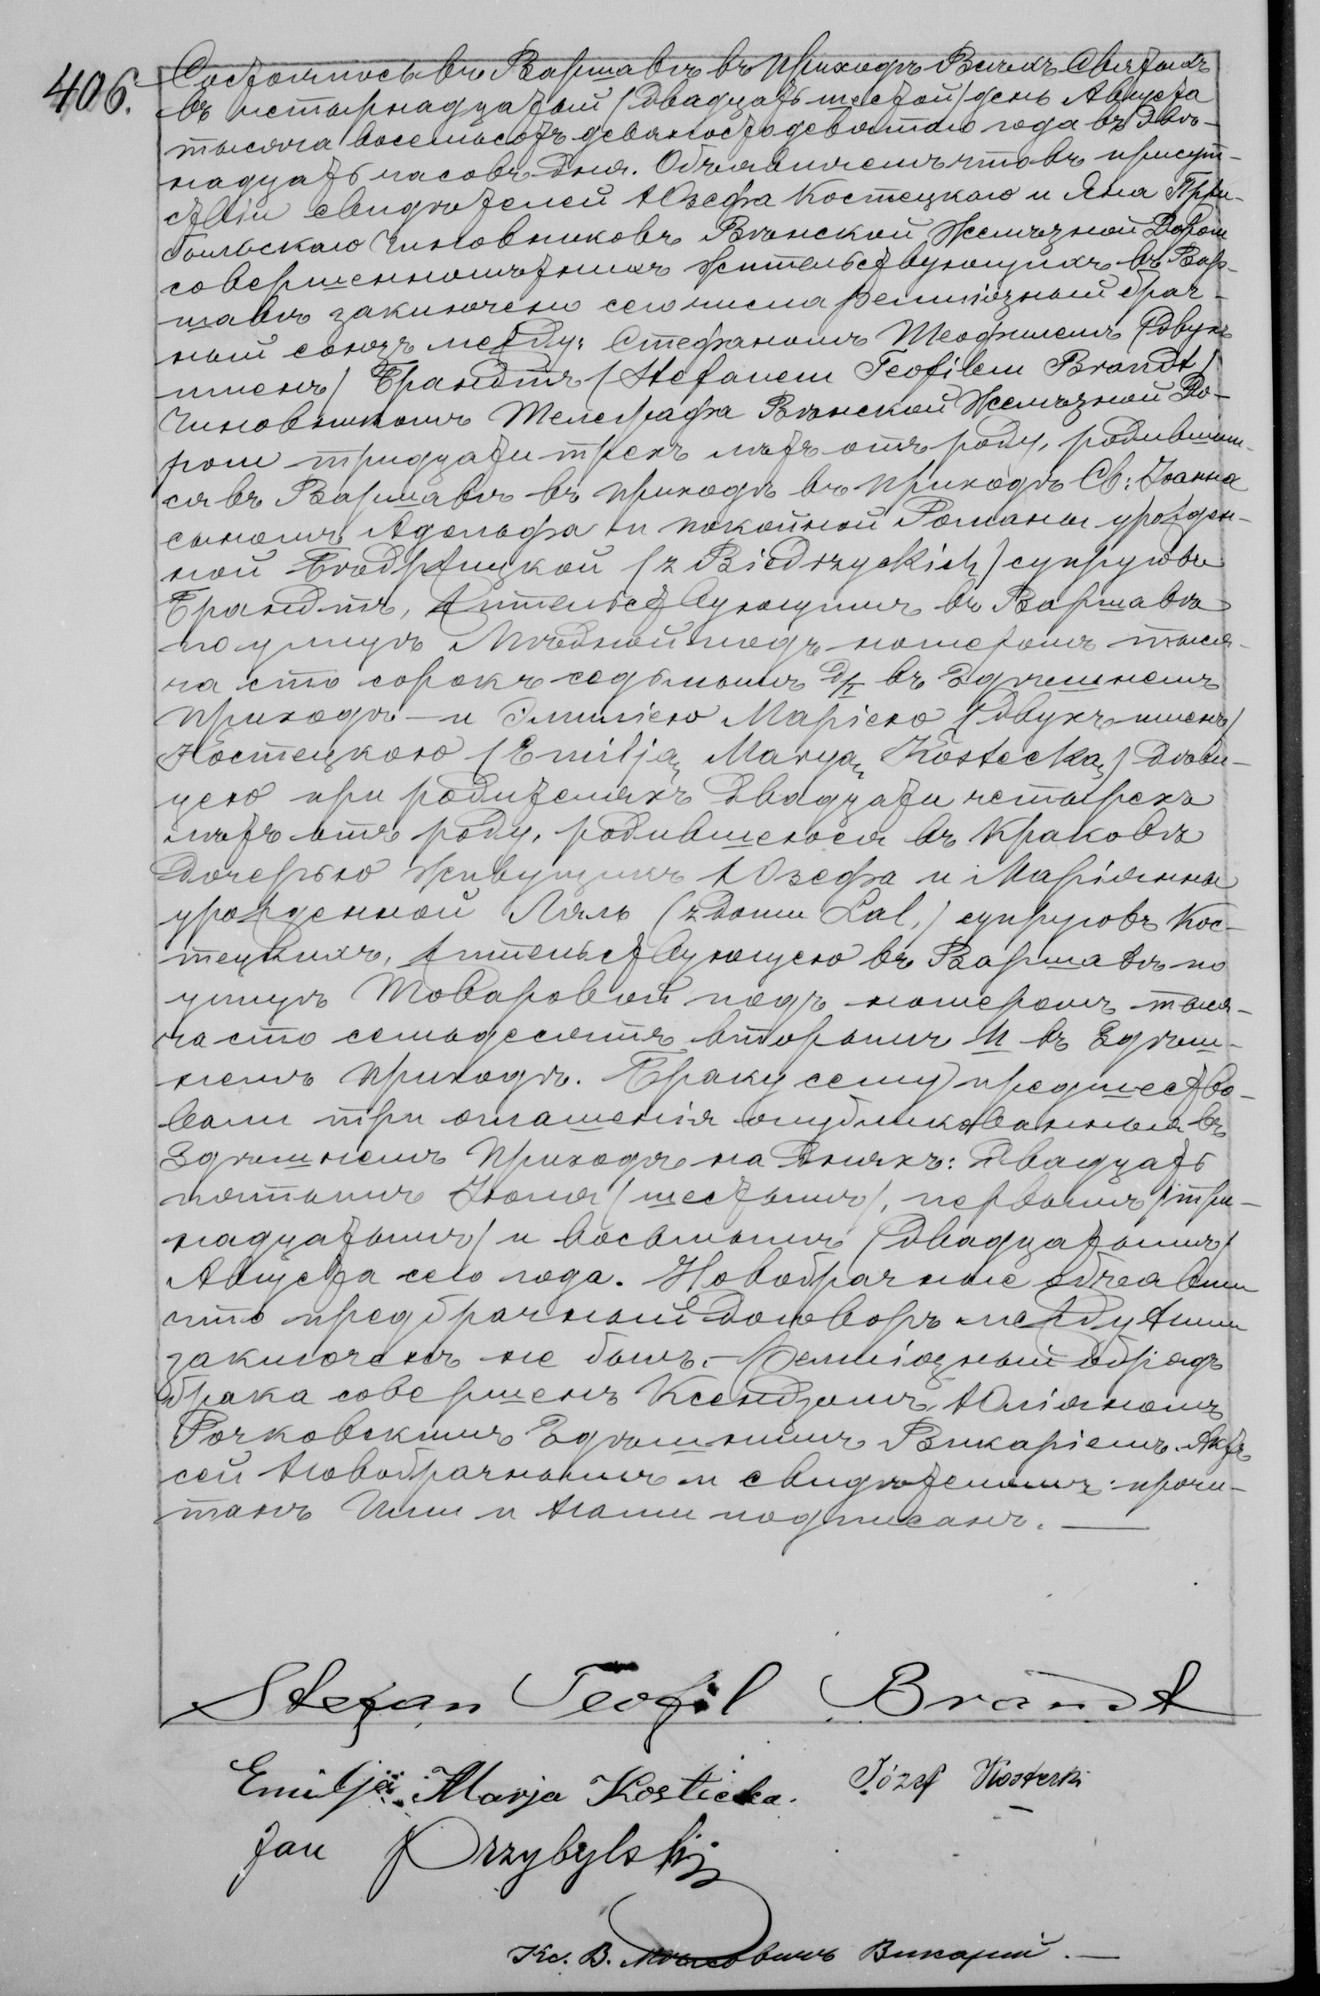 406.
Состоялось въ Варшавѣ въ приходѣ Всѣхъ Святыхъ
въ четырнадцатый /двадцать шестой/ день Августа
тысяча восемьсотъ девяносто девятаго года въ двѣ-
надцать часовъ дня. Объявляемъ что въ присут-
ствіи свидѣтелей Юзефа Костецкаго и Яна При-
быльскаго чиновниковъ Вѣнской Желѣзной Дороги
совершеннолѣтнихъ жительствующихъ въ Вар-
шавѣ заключено сего числа религіозный брач-
ный союзъ между: Стефаномъ Теофилемъ /двухъ
именъ/ Брандтъ /Stefanem Teofilem Brandt/
Чиновникомъ Телеграфа Вѣнской Желѣзной До-
роги тридцати трехъ лѣтъ отъ роду, родившим-
ся въ Варшавѣ въ приходѣ въ приходѣ Св: Іоанна
сыномъ Адольфа и покойной Романы урожден-
ной Бѣдржицкой /z Biedrzyckich/ супруговъ
Брандтъ, жительствующимъ въ Варшавѣ
по улицѣ Мѣдной подъ номеромъ тыся-
ча сто сорокъ седьмымъ въ здѣшнемъ
приходѣ — и Эмиліею Маріею /двухъ именъ/
Костецкою /Emilją Maryą Kostecką/ дѣви-
цею при родителяхъ двадцати четырехъ
лѣтъ отъ роду, родившеюся въ Краковѣ
дочерью живущихъ Юзефа и Маріянны
урожденной Ляль /z domu Lal,/ супруговъ Кос-
тецкихъ, жительствующею въ Варшавѣ по
улицѣ Товаровой подъ номеромъ тыся-
ча сто семьдесятъ вторымъ въ здѣш-
немъ приходѣ. Браку сему предшество-
вали три оглашенія опубликованныя въ
здѣшнемъ приходѣ на дняхъ: двадцать
пятымъ Іюля /шестымъ/, первымъ /три-
надцатымъ/ и восьмымъ /двадцатымъ/
Августа сего года. Новобрачные объявили
что предбрачный договоръ между ними
заключенъ не былъ. — Религіозный обрядъ
брака совершенъ Ксендзомъ Юліяномъ
Рочковскимъ Здѣшнимъ Викаріемъ. Актъ
сей новобрачнымъ и свидѣтелямъ прочи-
танъ Ими и Нами подписанъ. —
Stefan Teofil Brandt
Emilja Marja Kostecka. Józef Kostecki
Jan Przybylski
Кс. В. Викарій. —